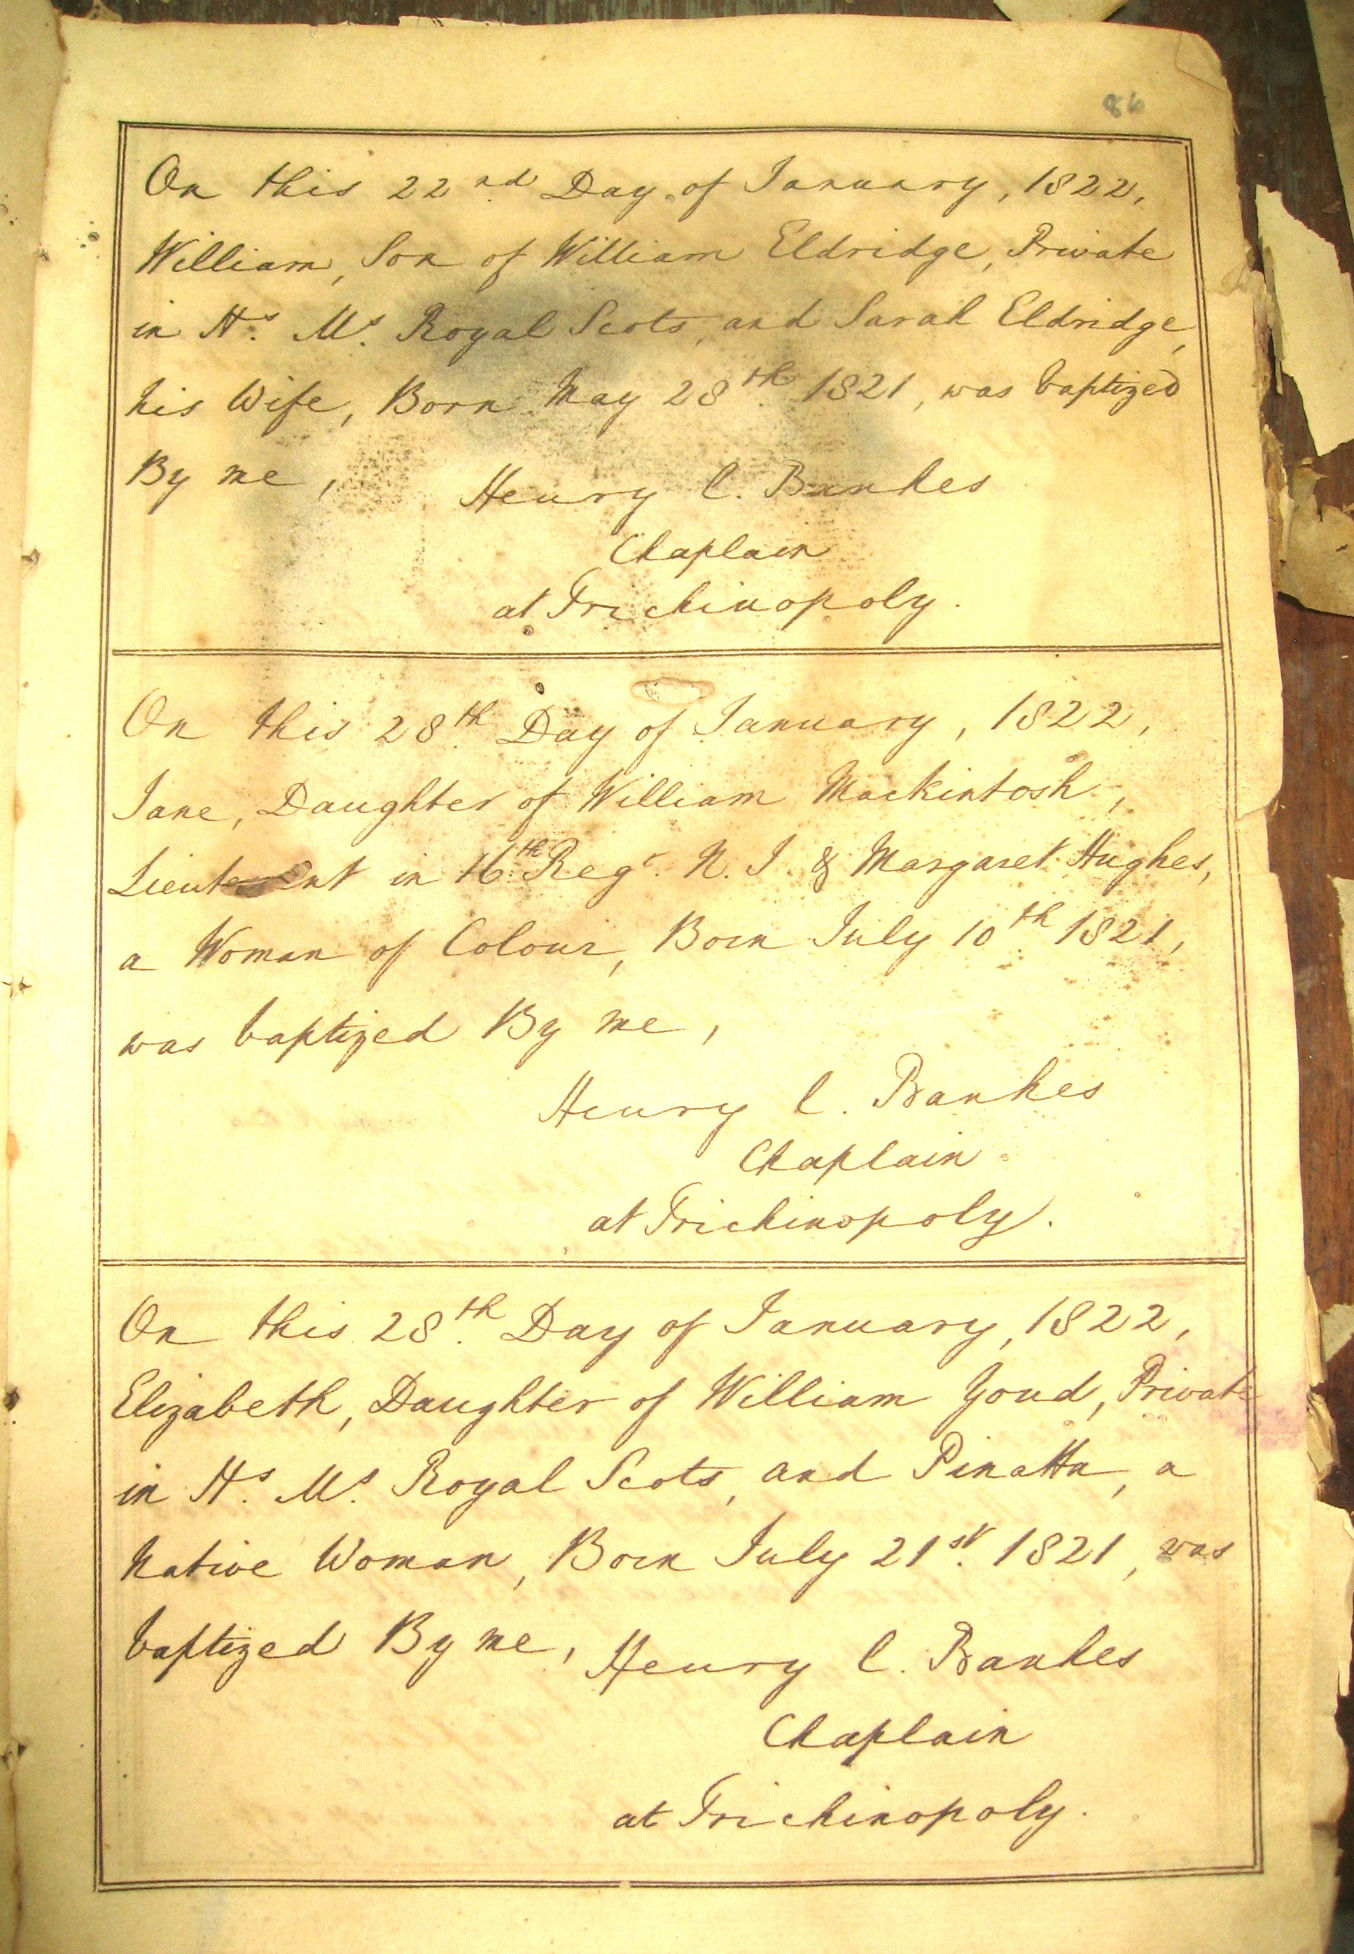 86
On this 22nd Day of January, 1822,
William, Son of William Eldridge, Private
in Hs. Ms. Royal Scots, and Sarah Eldridge,
his Wife, Born May 28th 1821, was baptized
By me,
Henry C. Bankes
Chaplain
at Trichinopoly.
On this 28th Day of January, 1822,
Jane, Daughter of William Mackintosh,
Lieutenant in 16th Regt. N. I. & Margaret Hughes,
a Woman of Colour, Born July 10th 1821,
was baptized By me,
Henry C. Bankes
Chaplain
at Trichinopoly.
On this 28th Day of January, 1822,
Elizabeth, Daughter of William Youd, Private
in Hs. Ms. Royal Scots, and Pinatta, a
Native Woman, Born July 21st. 1821, was
baptized By me,
Henry C. Bankes
Chaplain
at Trichinopoly.